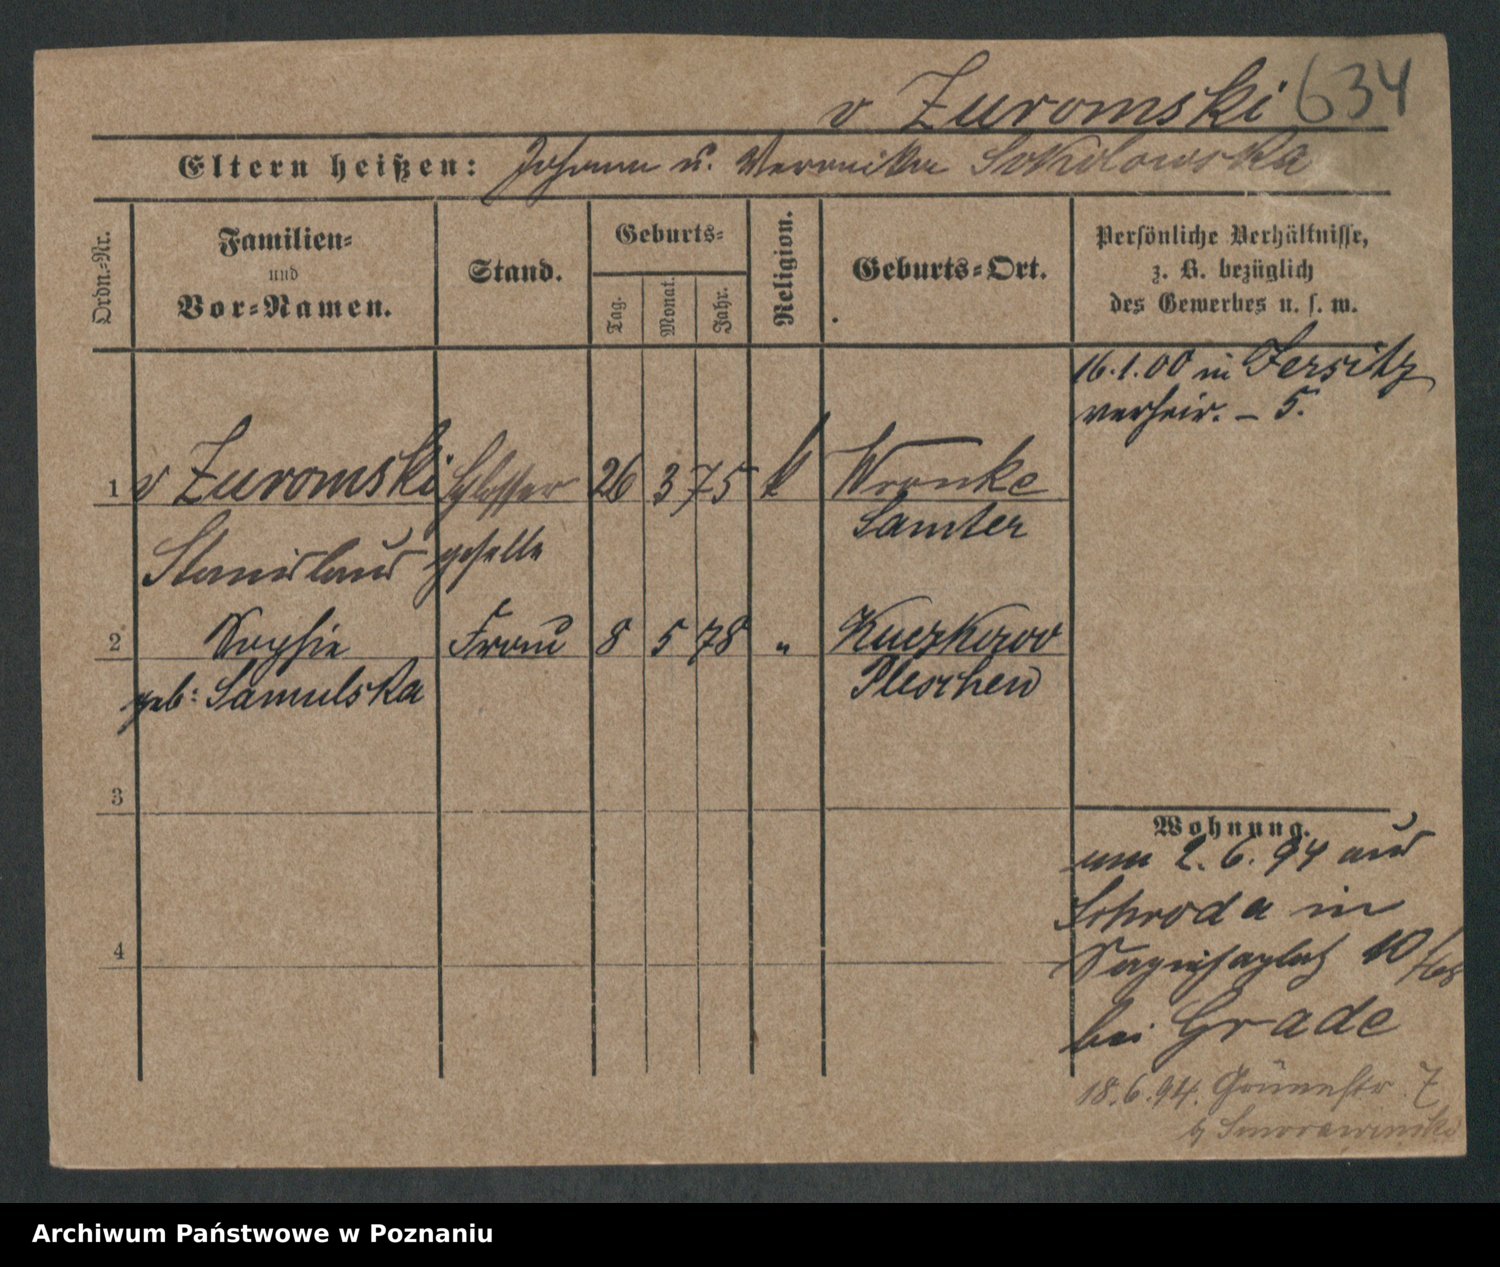 v Zuromski 634
Eltern heißen: Johann u. Veronika Sokolowska
Ordn.-Nr.
Familien-
und
Vor-Namen.
Stand.
Geburts-
Tag.
Monat.
Jahr.
Religion.
Geburts-Ort.
Persönliche Verhältnisse,
z. B. bezüglich
des Gewerbes u. s. w.
16.1.00 in Jersitz
verheir. – 5.
1 v Zuromski Schlosser 26 3 75 k Wronke
Samter
Stanislaus geselle
2 Sophie Frau 8 5 78 " Kuczkowo
geb: Samulska Pleschen
3
Wohnung.
am 2.6.94 aus
Schroda in
Sapiehaplatz 10/
4
bei Grade
18.6.94. Grünestr. 7
Archiwum Państwowe w Poznaniu